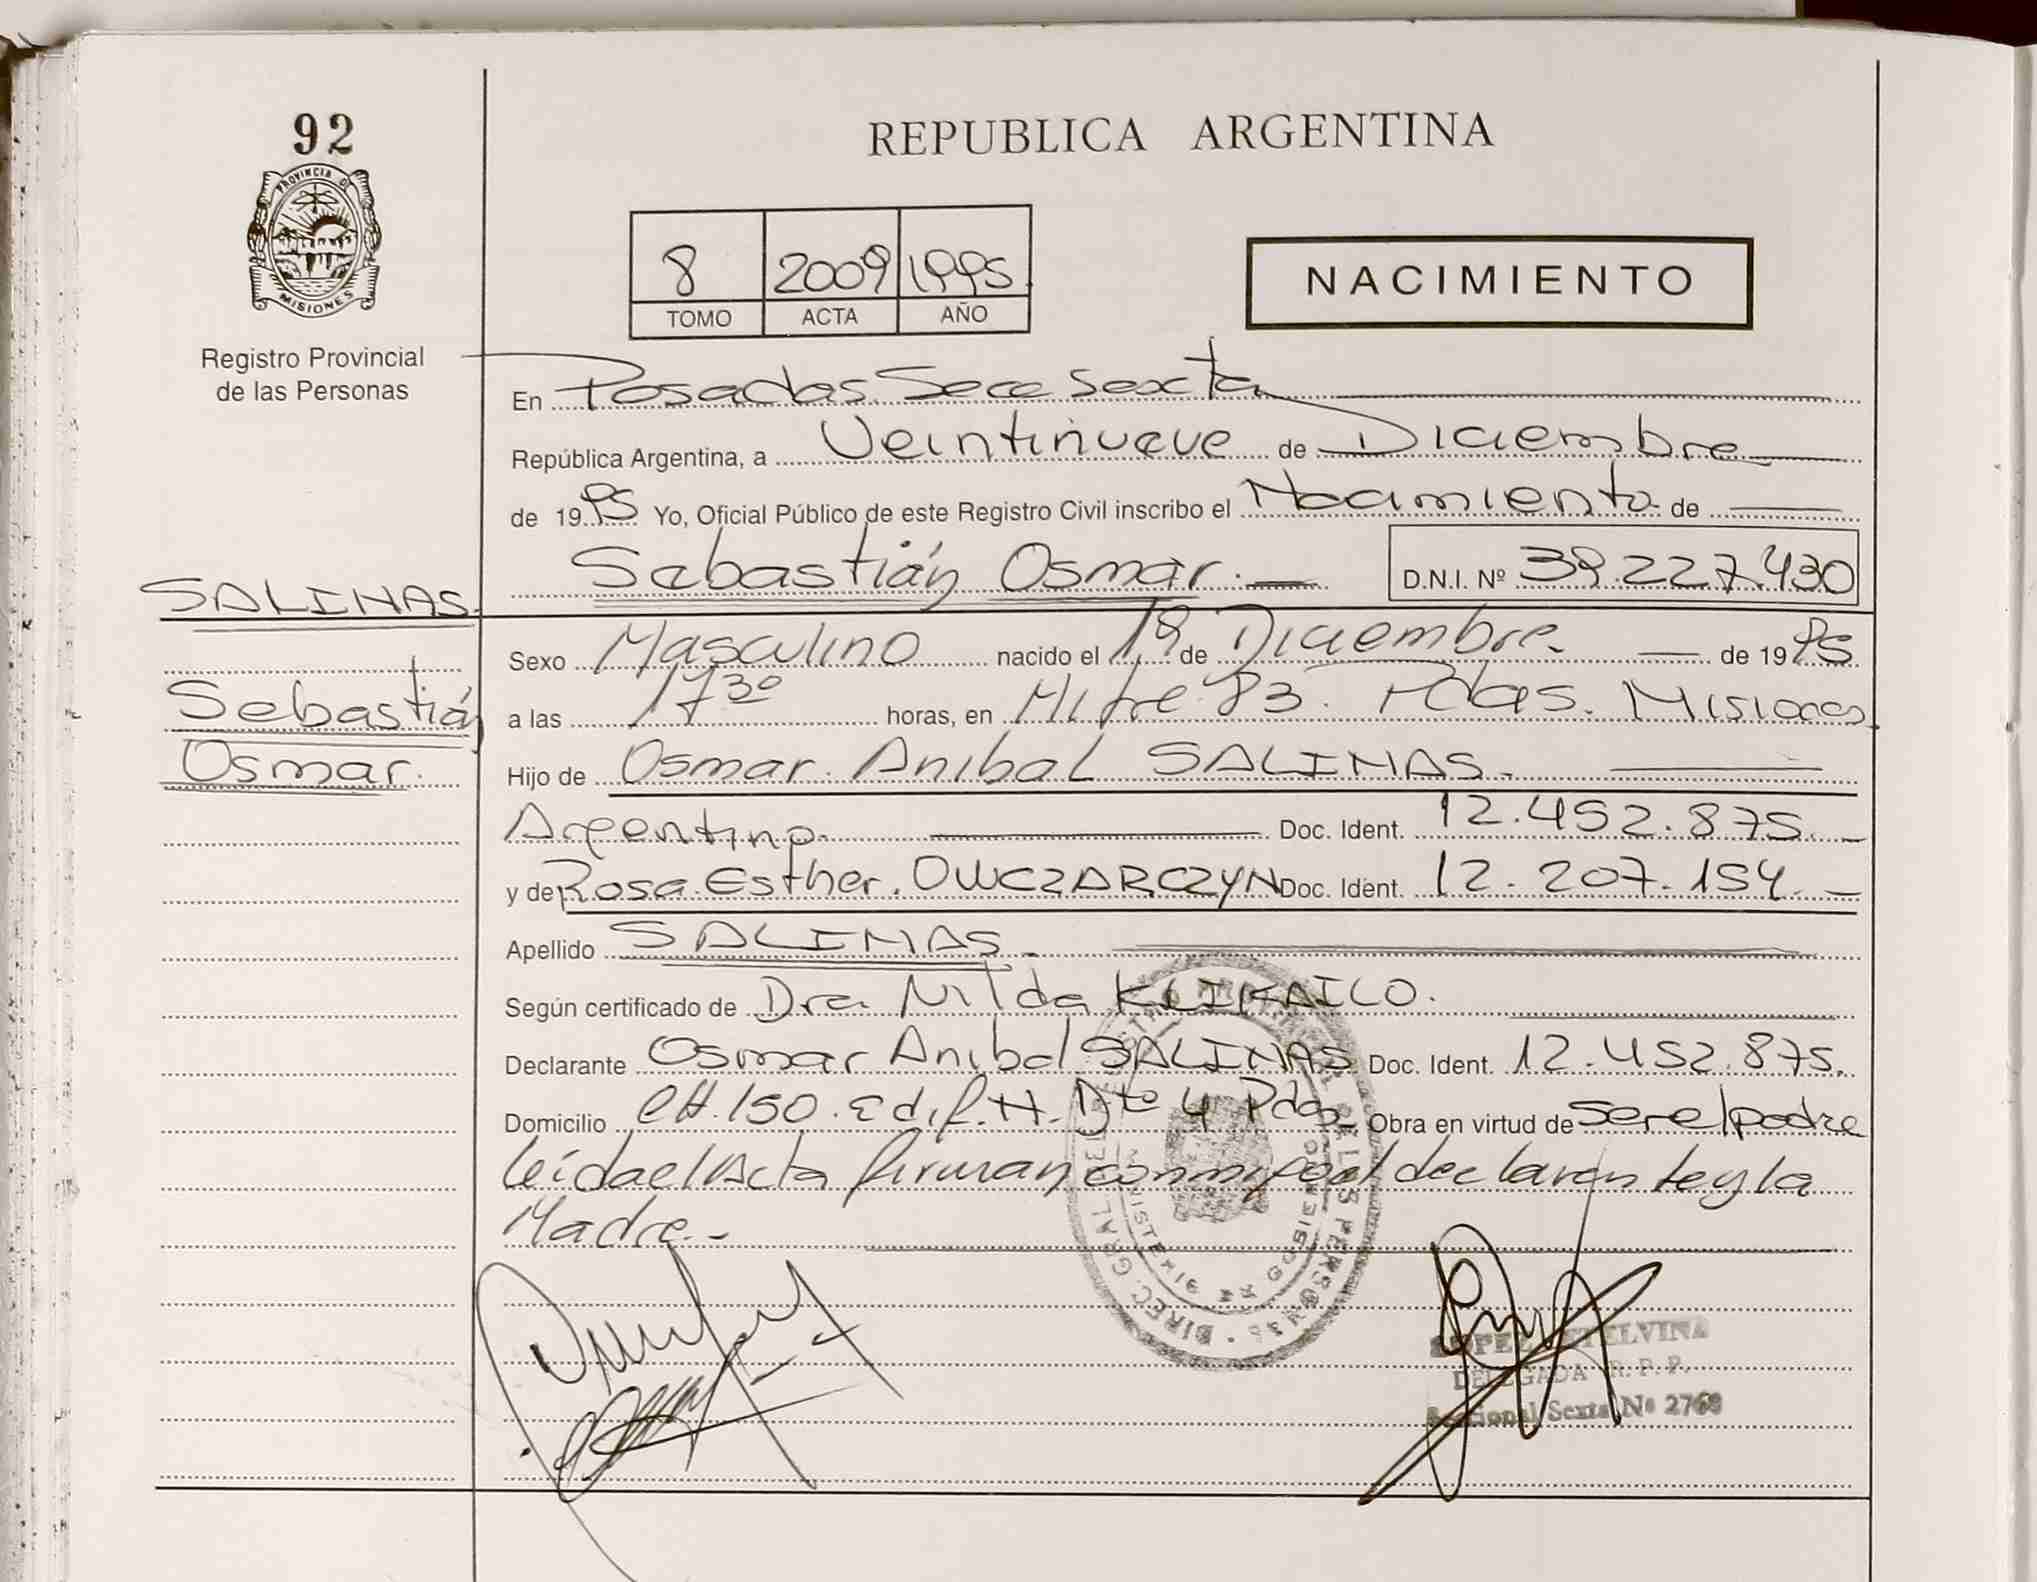 92
REPUBLICA ARGENTINA
PROVINCIA DE
MISIONES
Registro Provincial
de las Personas
8 2009 1995
TOMO ACTA AÑO
NACIMIENTO
En Posadas Secc Sexta
República Argentina, a Veintinueve de Diciembre
de 1995 Yo, Oficial Público de este Registro Civil inscribo el Nacimiento de
Sebastián Osmar. D.N.I. Nº 39.227.430
SALINAS.
Sebastián
Osmar.
Sexo Masculino nacido el 18 de Diciembre. de 1995
a las 17 30 horas, en Mitre 83. Pdas. Misiones
Hijo de Osmar Anibal SALINAS.
Argentino. Doc. Ident. 12.452.875.
y de Rosa Esther. OWCZARCZYN Doc. Ident. 12.207.154.
Apellido SALINAS.
Según certificado de Dra. Nilda
Declarante Osmar Anibal SALINAS Doc. Ident. 12.452.875.
Domicilio CH.150. Edif.H. Dto 4 Pdas Obra en virtud de ser el padre
leida el Acta firman conmigo el declarante y la
Madre.
DIREC. GRAL. DEL REGISTRO PROVINCIAL DE LAS PERSONAS
MINISTERIO GOBIERNO
LOPEZ ETELVINA
DELEGADA R. P. P.
Seccional Sexta Nº 2768